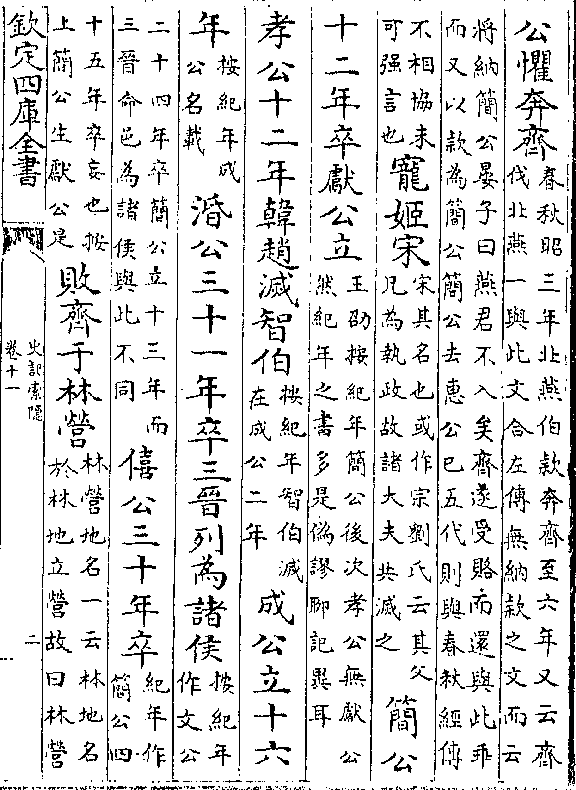 公懼奔齊
春秋昭三年北燕伯款奔齊至六年又云齊
伐北燕一與此文合左傳無納款之文而云
將納簡公晏子曰燕君不入矣齊遂受賂而還與此乖
而又以款為簡公簡公去惠公已五代則與春秋經傳
不相協未
可强言也
寵姬宋
宋其名也或作宗劉氏云其父
兄為執政故諸大夫共滅之
簡公
十二年卒獻公立
王劭按紀年簡公後次孝公無獻公
然紀年之書多是偽謬聊記異耳
孝公十二年韓趙滅智伯
按紀年智伯滅
在成公二年
成公立十六
年
按紀年成
公名載
湣公三十一年卒三晉列為諸侯
按紀年
作文公
二十四年卒簡公立十三年而
三晉命邑為諸侯與此不同
僖公三十年卒
紀年作
簡公四
十五年卒妄也按
上簡公生獻公是
敗齊于林營
林營地名一云林地名
於林地立營故曰林營
欽定四庫全書
史記索隱
卷十一
二